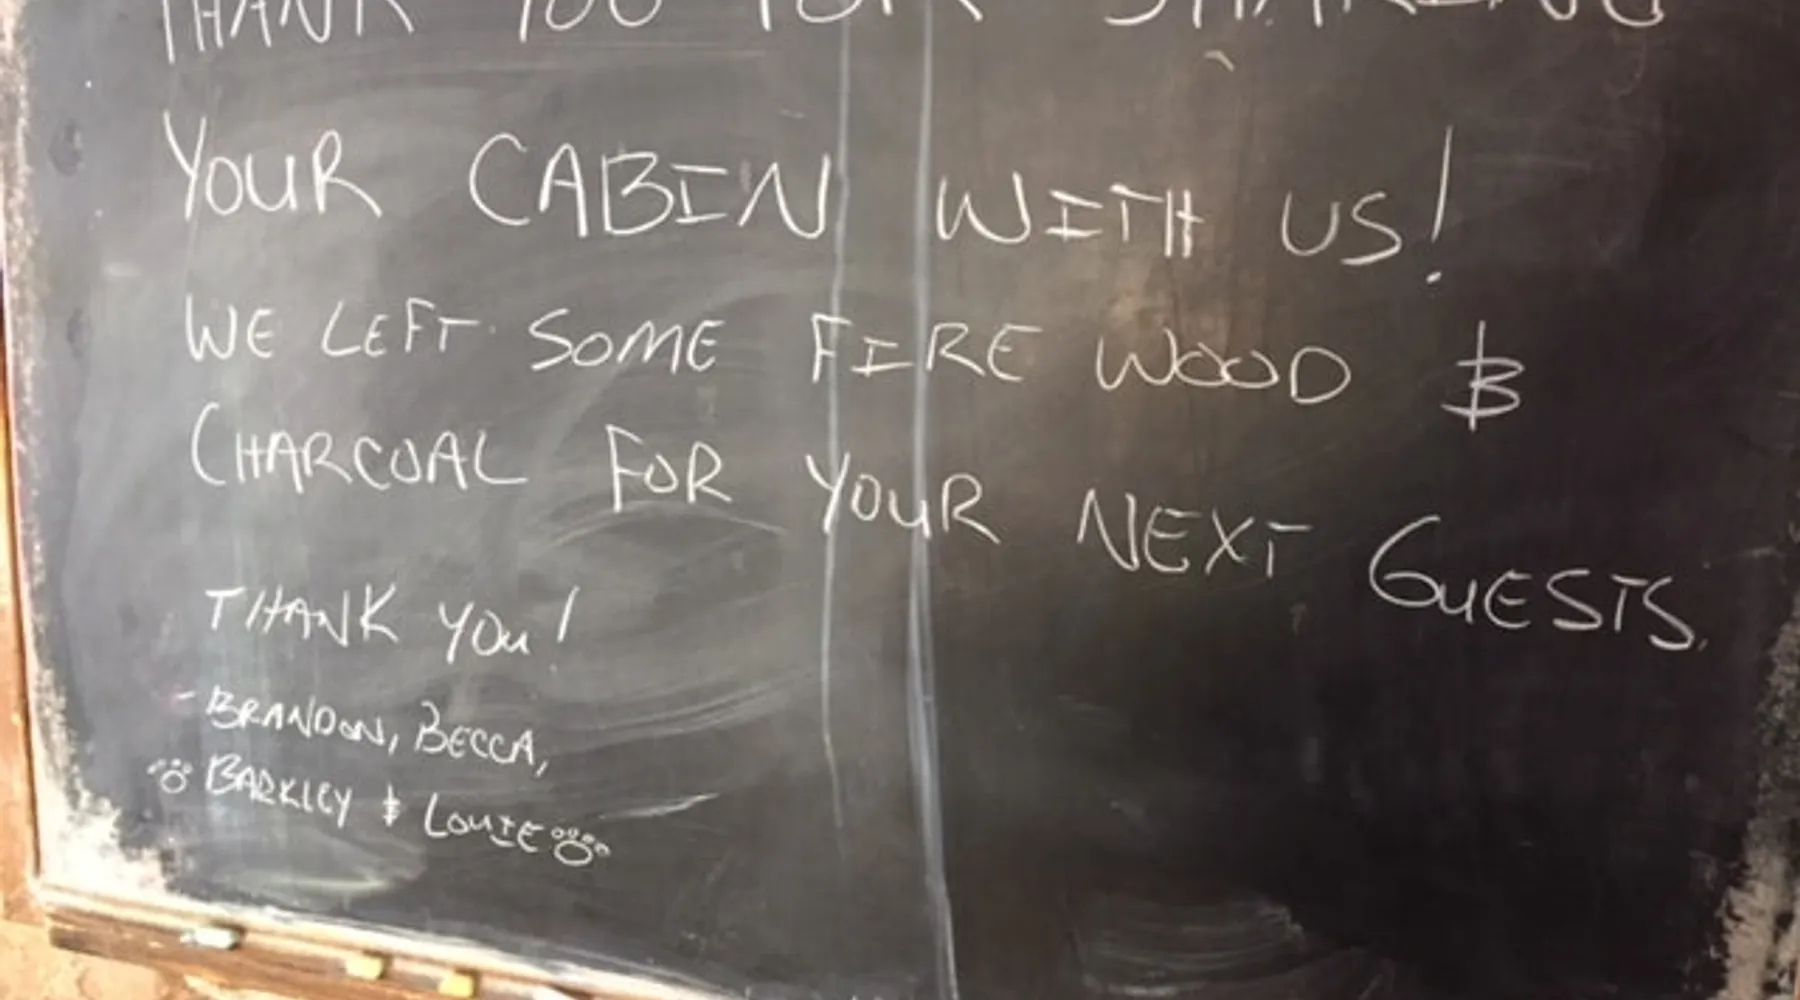 THANK YOU FOR SHARING
YOUR CABIN WITH US!
WE LEFT SOME FIRE WOOD &
CHARCOAL FOR YOUR NEXT GUESTS.
THANK YOU!
- BRANDON, BECCA,
BARKLEY & LOUIE